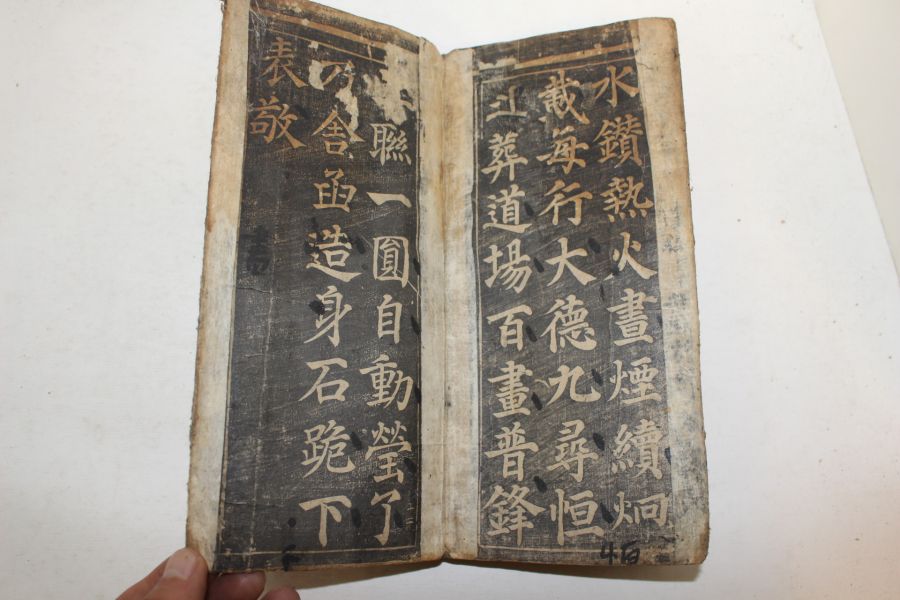 水鑽熱火晝煙續炯
戴每行大德九尋恒
葬道場百畫普鋒
聯一圓自動瑩了
舍函造身石跪下
表敬